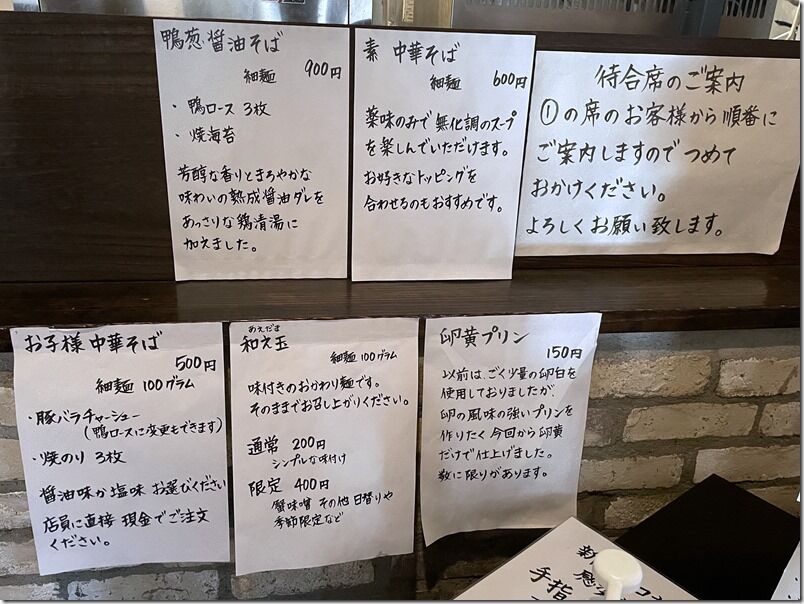 鴨葱 醤油そば
細麺 900円
・鴨ロース 3枚
・焼海苔
芳醇な香りとまろやかな
味わいの熟成醤油ダレを
あっさりな鶏清湯に
加えました。
素 中華そば
細麺 600円
薬味のみで無化調のスープ
を楽しんでいただけます。
お好きなトッピングを
合わせるのもおすすめです。
待合席のご案内
①の席のお客様から順番に
ご案内しますのでつめて
おかけください。
よろしくお願い致します。
お子様 中華そば
500円
細麺 100グラム
・豚バラチャーシュー
(鴨ロースに変更もできます)
・焼のり 3枚
醤油味か塩味 お選びください
店員に直接 現金でご注文
ください。
あえだま
和え玉
細麺 100グラム
味付きのおかわり麺です。
そのままでお召し上がりください。
通常 200円
シンプルな味付け
限定 400円
蟹味噌 その他 日替りや
季節限定など
卵黄プリン
150円
以前は、ごく少量の卵白を
使用しておりましたが、
卵の風味の強いプリンを
作りたく 今回から卵黄
だけで仕上げました。
数に限りがあります。
手指